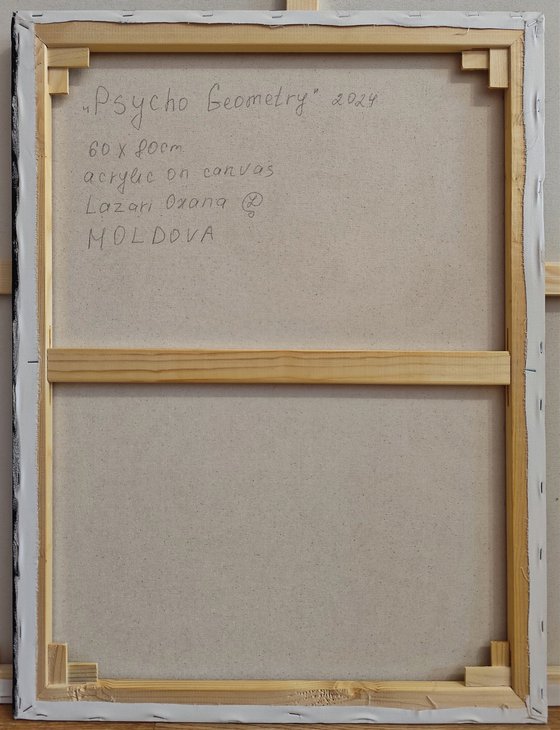 „Psycho Geometry" 2024
60 x 80cm
acrylic on canvas
Lazari Oxana
MOLDOVA